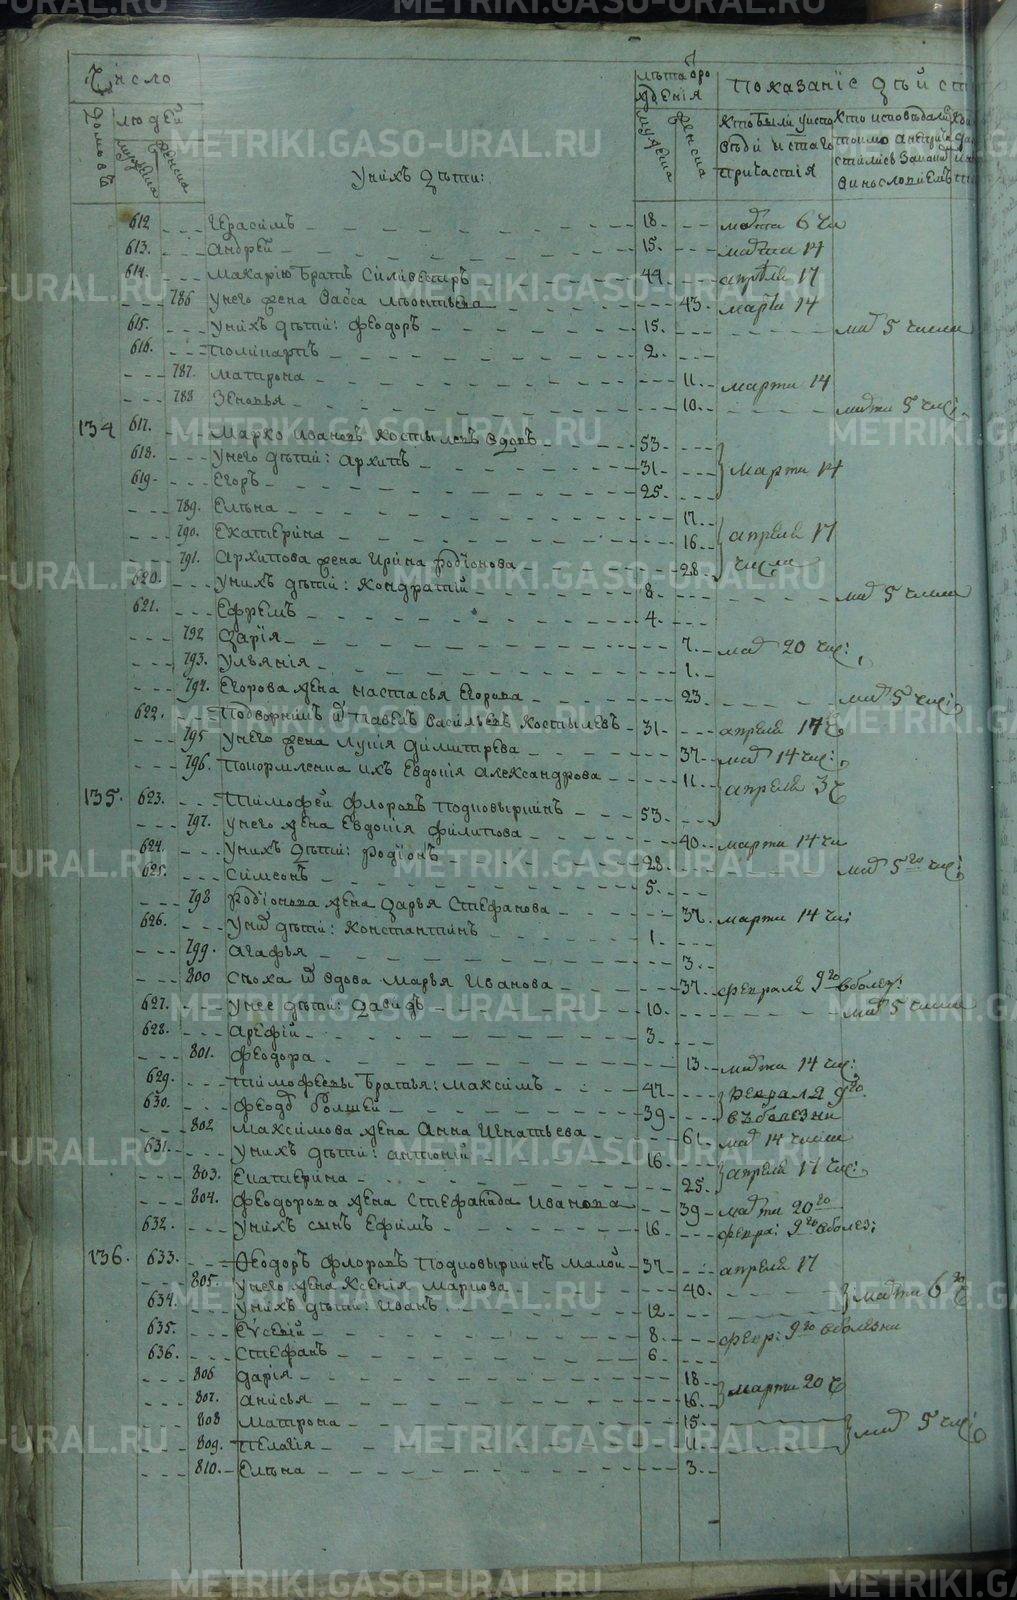 Число
лѣта ро
ждения
показаніе дѣйст
домовъ
людей
мужеска
женска
мужеска
женска
кто были уиспо
вѣди и стаго
причастія
У нихъ дѣти:
612 Герасимъ 18 марта 6 чи
613. Андрей 15. марта 14
614. Макарію братъ Силивестръ 44 апрѣля 17
786 У него жена Васса Леонтьева 43. марта 14
615. У нихъ дѣти: Феодоръ 15. ма 5 числа
616. Поликарпъ 2.
787. Матрона 11. марта 14
788 Зеновья 10. марта 5 чис:
134 617. Марко Ивановъ Костылевъ вдовъ 53
618. У него дѣти: Архипъ 31 марта 14
619. Егоръ 25.
789. Елѣна 17.
790. Екатерина 16. апреля 17
791. Архипова жена Ирина Родіонова 28. числа
620. У нихъ дѣти: Кондратій 8. ма 5 числа
621. Ефремъ 4.
792 Дарія 7. ма 20 чис:
793. Ульянія 1.
794. Егорова жена Настасья Егорова 23. ма 5 чис:
622. Подворникъ Павелъ Васильевъ Костылевъ 31 апреля 14
795 У него жена Лукія Димитрева 37. ма 14 чис:
796. Покормленка ихъ Евдокія Александрова 11. апреля 3
135. 623. Тимофей Флоровъ Подковыринъ 53.
797. У него жена Евдокія Филипова 40. марта 14 чи
624. У нихъ дѣти: Родіонъ 28. ма 5го чис:
625. Симеонъ 5.
798 Родіонова жена Дарья Стефанова 37. марта 14 чи:
626. У ни дѣти: Константинъ 1.
799. Агафья 3.
800 Сноха вдова Марья Иванова 37. февраля 9го в болез:
627. У нее дѣти: Давидъ 10. ма 5 числа
628. Арефій 3.
801. Феодора 13. марта 14 чис:
629. Тимофеевы братья: Максимъ 47. февраля 9го
630. Феодо болшей 39 въ болезни
802 Максимова жена Анна Игнатьева 61. ма 14 числа
631. У нихъ дѣти: Антоній 16. апреля 17 чис:
803. Екатерина 25.
804. Феодорова жена Стефанида Иванова 39 марта 20го
632. У нихъ сынъ Ефимъ 16 февра: 9го в болез:
136. 633. Феодоръ Флоровъ Подковыринъ малой 37. апреля 17
805. У него жена Ксенія Маркова 40. марта 6го
634. У нихъ дѣти: Иванъ 12.
635. Еѵсевій 8. февр: 9го в болезни
636. Стефанъ 6.
806 Дарія 18
807. Анисья 16. марта 20 ч
808 Матрона 15.
809. Пелагія 11. ма 5 чис:
810. Елѣна 3.
METRIKI.GASO-URAL.RU